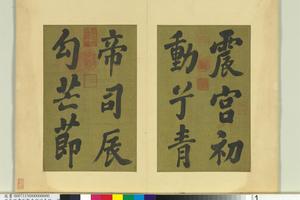 震宮初
動兮青
帝司辰
勾芒節